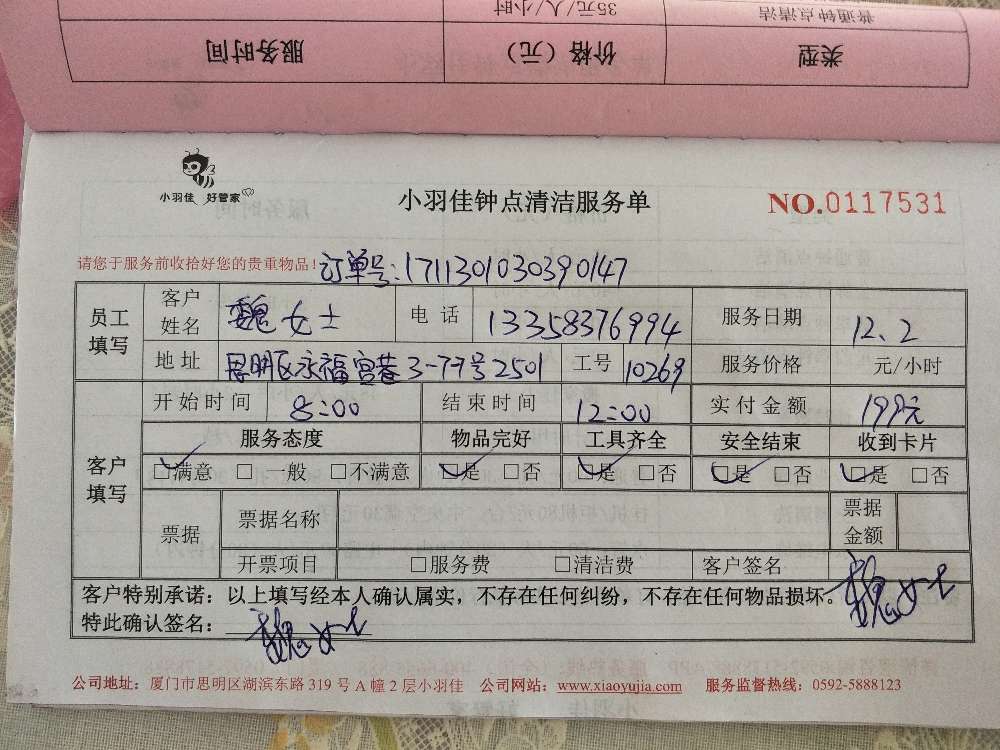 普通钟点清洁 35元/人/小时
类型 价格（元） 服务时间
小羽佳 好管家
小羽佳钟点清洁服务单
NO.0117531
请您于服务前收拾好您的贵重物品！订单号:1711301030390147
员工填写
客户姓名 魏女士 电话 13358376994 服务日期 12.2
地址 思明区永福宫巷3-77号2501 工号 10269 服务价格 元/小时
开始时间 8:00 结束时间 12:00 实付金额 199元
客户填写
服务态度 物品完好 工具齐全 安全结束 收到卡片
☑满意 □一般 □不满意 ☑是 □否 ☑是 □否 ☑是 □否 ☑是 □否
票据 票据名称 票据金额
开票项目 □服务费 □清洁费 客户签名 魏女士
客户特别承诺：以上填写经本人确认属实，不存在任何纠纷，不存在任何物品损坏。
特此确认签名： 魏女士
公司地址：厦门市思明区湖滨东路319号A幢2层小羽佳 公司网站：www.xiaoyujia.com 服务监督热线：0592-5888123